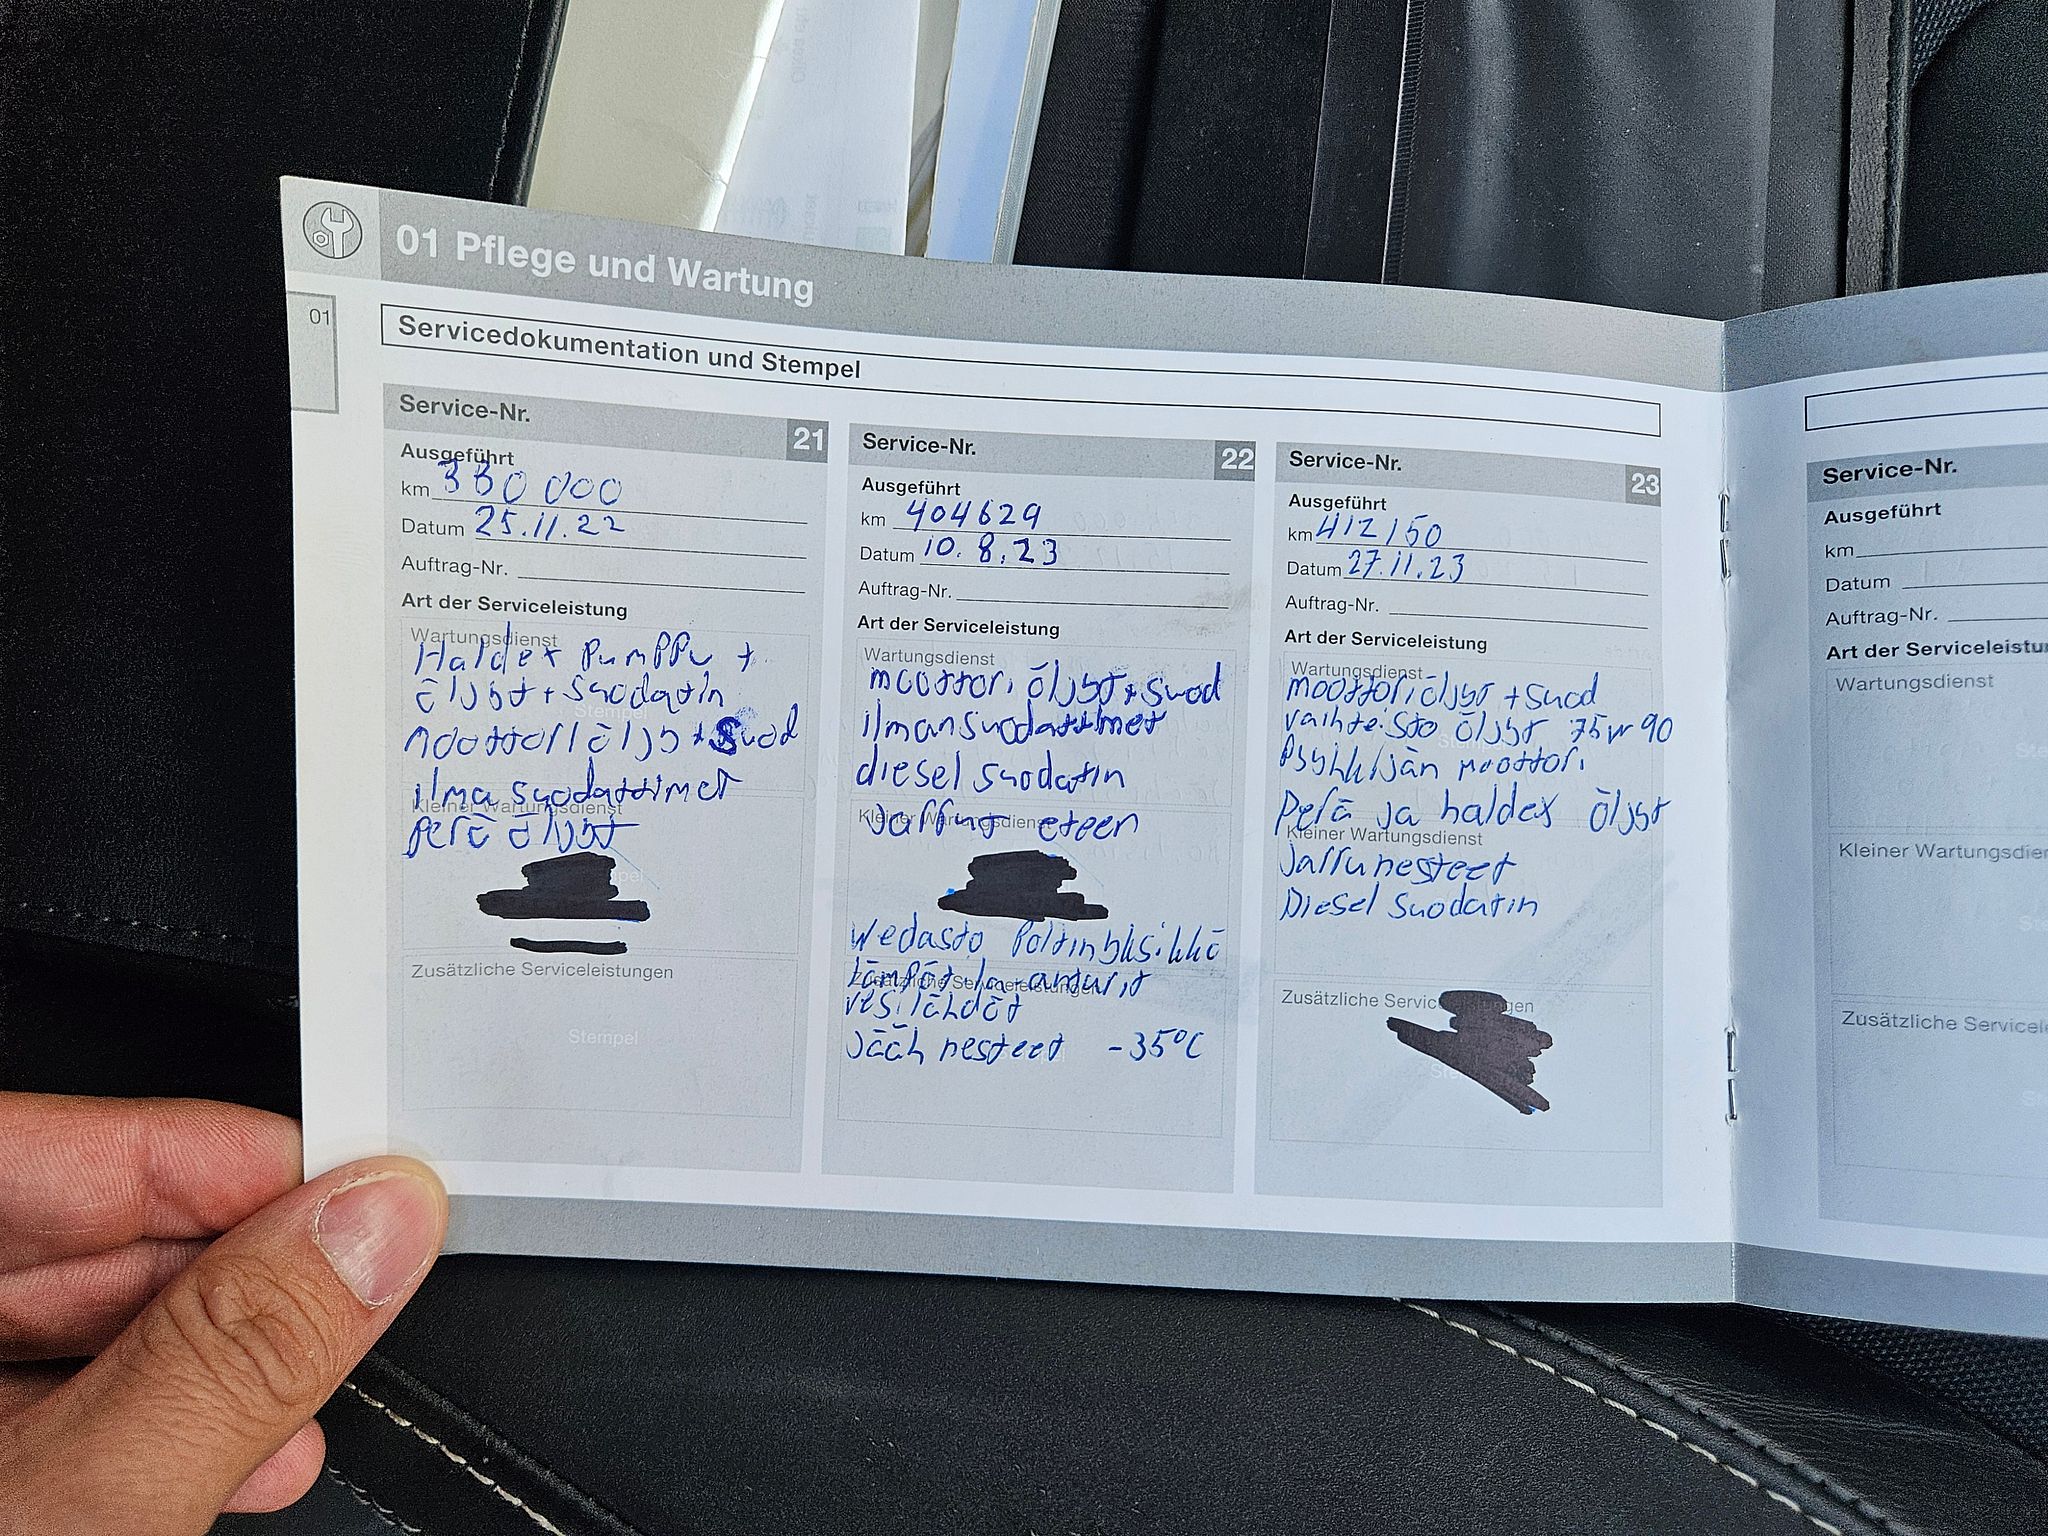 01 Pflege und Wartung
01
Servicedokumentation und Stempel
Service-Nr. 21
Ausgeführt
km 330 000
Datum 25.11.22
Auftrag-Nr.
Art der Serviceleistung
Wartungsdienst
Haldex pumppu +
öljyt + suodatin
Stempel
moottori öljy + Suod
ilma suodattimet
Kleiner Wartungsdienst
perä öljyt
Zusätzliche Serviceleistungen
Stempel
Service-Nr. 22
Ausgeführt
km 404629
Datum 10.8.23
Auftrag-Nr.
Art der Serviceleistung
Wartungsdienst
moottori öljyt + suod
ilmansuodattimet
diesel suodatin
Kleiner Wartungsdienst
Jarrut eteen
Webasto Poltinyksikkö
lämpötila-anturit
Zusätzliche Serviceleistungen
vesilähdöt
Jääh nesteet -35°C
Service-Nr. 23
Ausgeführt
km 412150
Datum 27.11.23
Auftrag-Nr.
Art der Serviceleistung
Wartungsdienst
moottoriöljyt + suod
vaihteisto öljyt 75w90
Stempel
Pyyhkijän moottori
Perä ja haldex öljyt
Kleiner Wartungsdienst
Jarrunesteet
Diesel suodatin
Zusätzliche
Service-Nr.
Ausgeführt
km
Datum
Auftrag-Nr.
Art der
Wartungsdienst
Kleiner
Zusätzliche